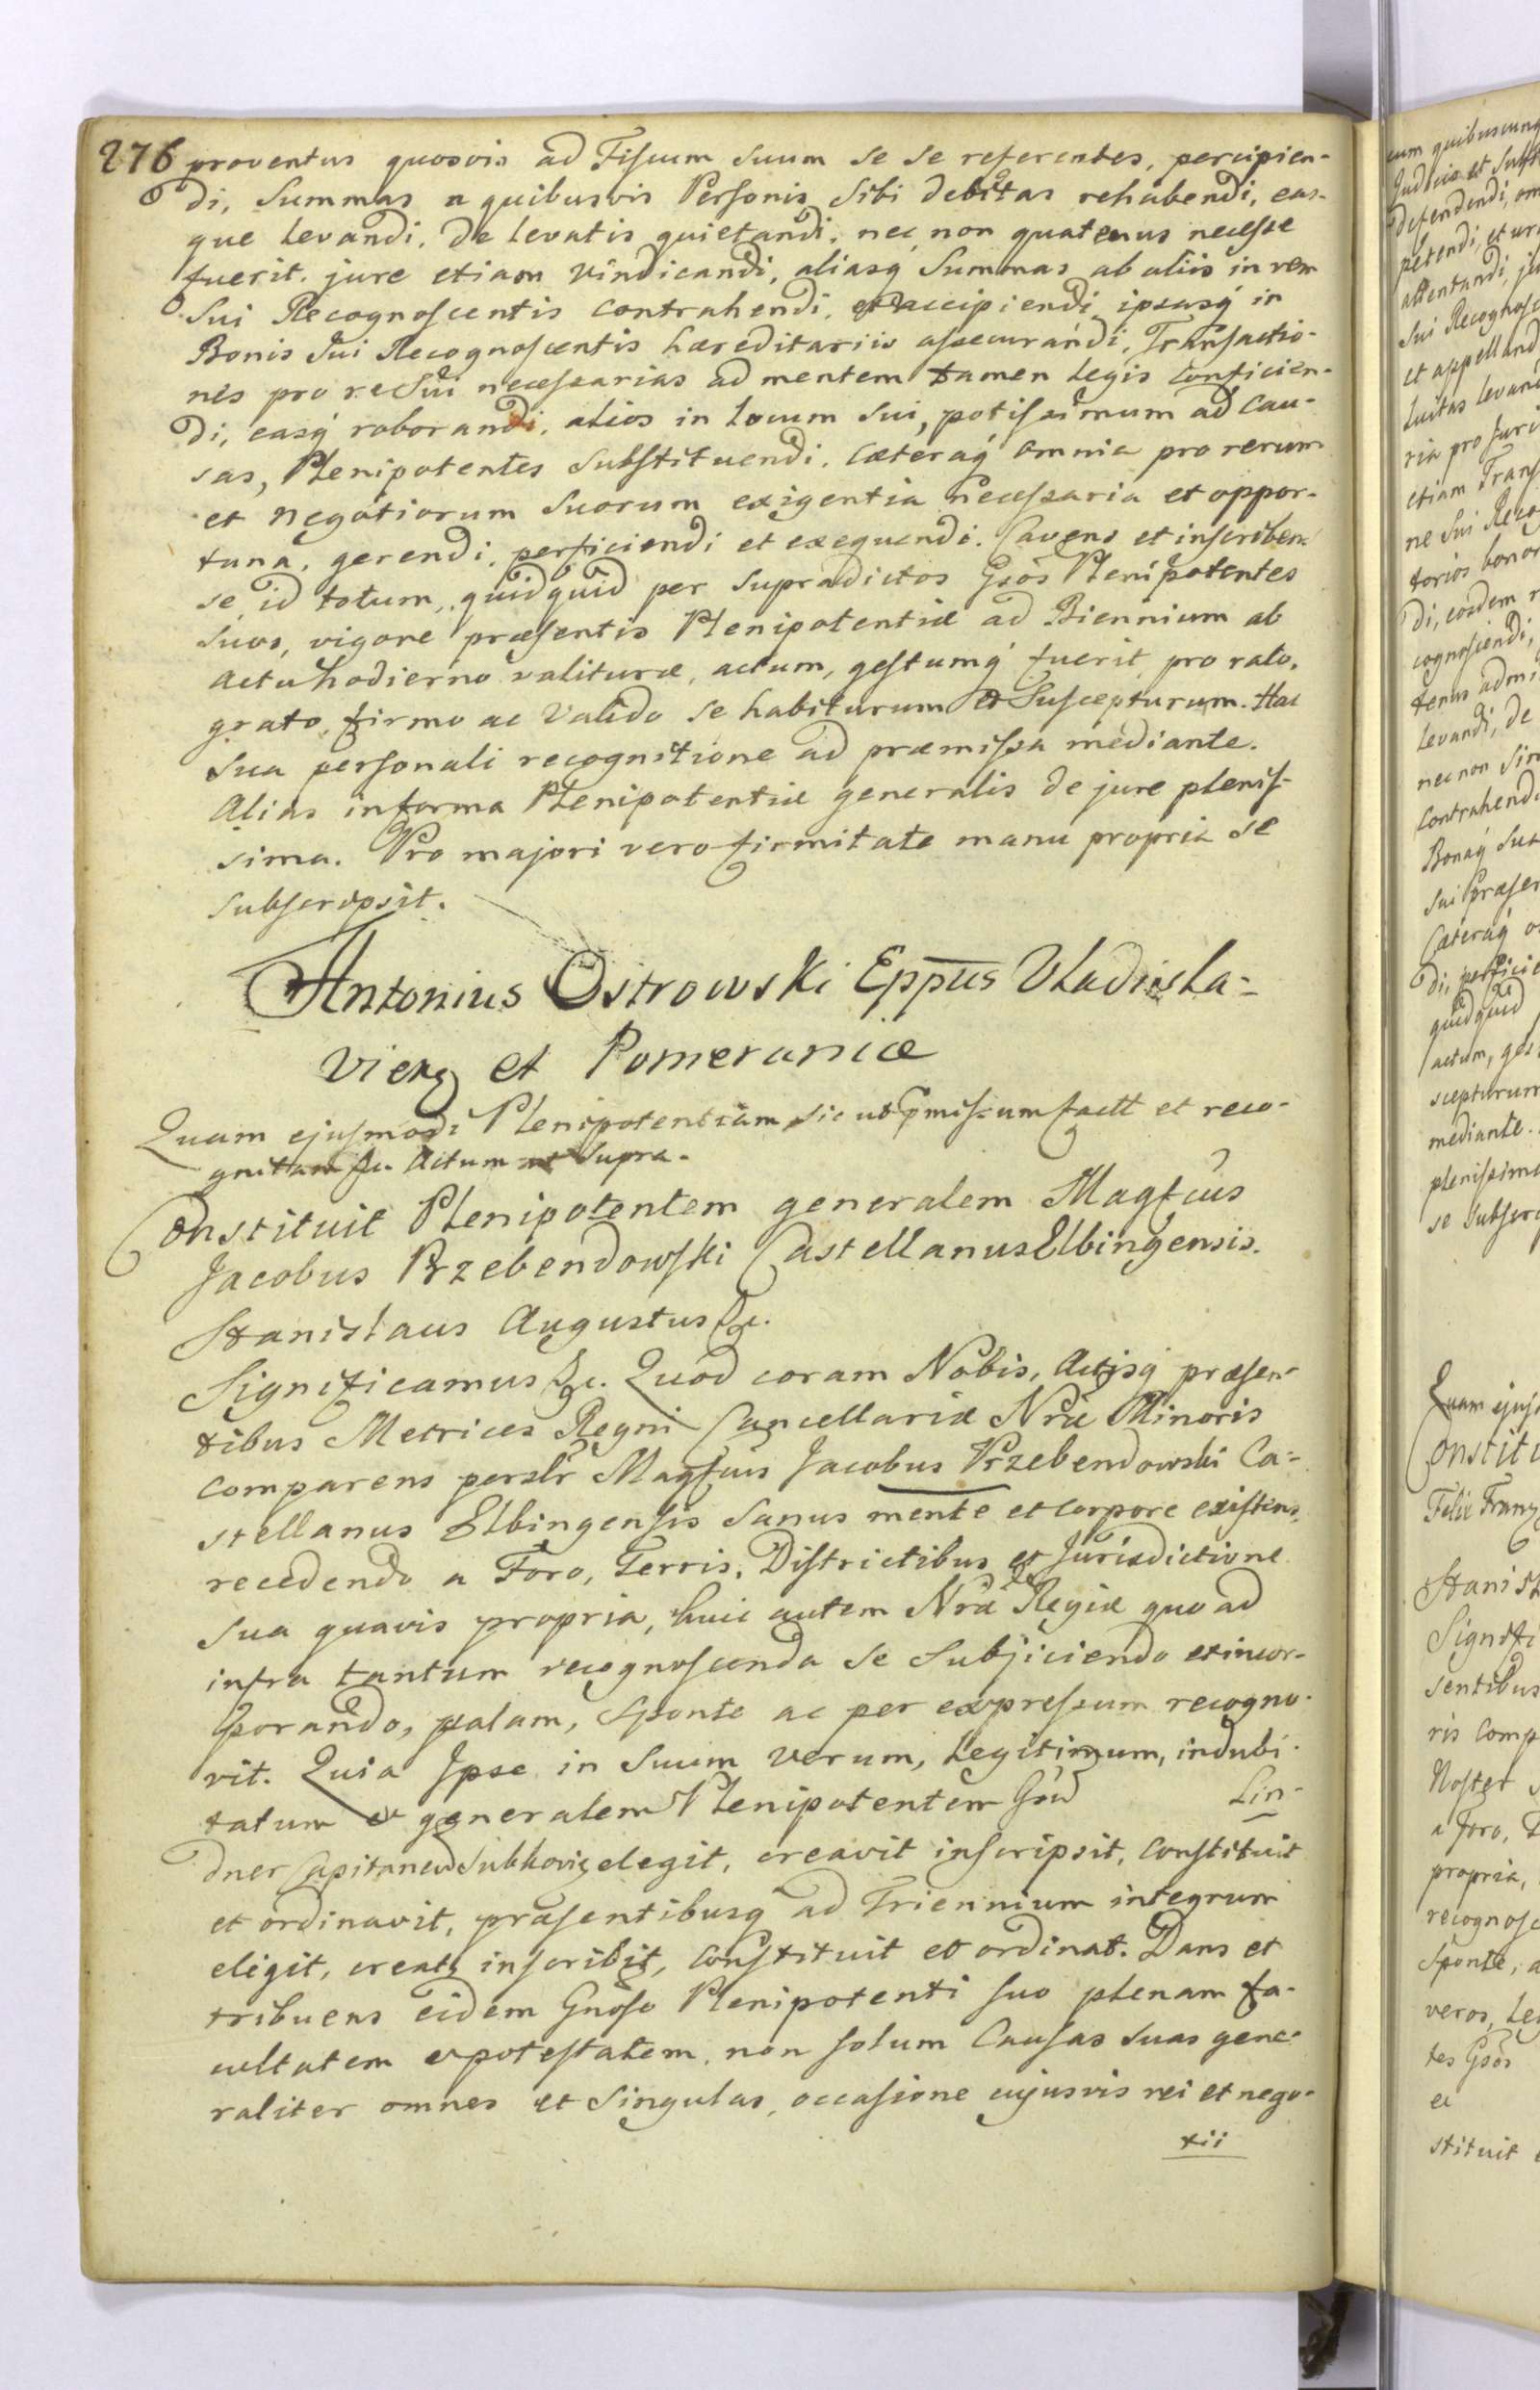 276 proventus quosvis ad Fiscum suum se se referentes, percipien-
di, Summas a quibusvis Personis sibi debitas rehabendi, eas-
que levandi, de levatis quietandi, nec non quatenus necesse
fuerit jure etiam vindicandi, aliasq́ Summas ab aliis in rem
sui Recognoscentis contrahendi, et accipiendi ipsasq́ in
Bonis sui Recognoscentis hæreditariis assecurandi, Transactio-
nes pro re sui necessarias ad mentem tamen Legis conficien-
di, easq́ roborandi, alios in locum sui, potissimum ad cau-
sas, Plenipotentes substituendi, cæteraq́ omnia pro rerum
et negotiorum suorum exigentia necessaria et oppor-
tuna, gerendi, perficiendi et exequendi. Cavens et inscribens
se id totum, quidquid per supradictos Gsos Plenipotentes
suos, vigore præsentis Plenipotentiæ ad Biennium ab
actu hodierno valituræ, actum, gestumq́ fuerit pro rato,
grato, firmo ac valido se habiturum et suscepturum. Hac
sua personali recognitione ad præmissa mediante.
Alias in forma Plenipotentiæ generalis de jure plenis-
sima. Pro majori vero firmitate manu propria se
subscripsit.
Antonius Ostrowski Eppus Vladisla-
vien et Pomeraniæ
Quam ejusmodi Plenipotentiam sic ut pmissum factt et reco-
gnitam &c. Actum ut supra.
Constituit Plenipotentem generalem Magfcus
Jacobus Przebendowski Castellanus Elbingensis.
Stanislaus Augustus &c.
Significamus &c. Quod coram Nobis, Actisq́ præsen-
tibus Metrices Regni Cancellariæ Nræ Minoris
comparens perslr Magfcus Jacobus Przebendowski Ca-
stellanus Elbingensis sanus mente et corpore existens,
recedendo a Foro, Terris, Districtibus et Jurisdictione
sua quavis propria, huic autem Nræ Regiæ quo ad
infra tantum recognoscenda se subjiciendo et incor-
porando, palam, sponte ac per expressum recogno-
vit. Quia Ipse in suum verum, legitimum, indubi-
tatum et generalem Plenipotentem Gsu Lin-
dner Capitaneu elegit, creavit inscripsit, constituit
et ordinavit, præsentibusq́ ad Triennium integrum
eligit, creat, inscribit, constituit et ordinat. Dans et
tribuens eidem Gnoso Plenipotenti suo plenam fa-
cultatem et potestatem, non solum Causas suas gene-
raliter omnes et singulas, occasione cujusvis rei et nego-
tii